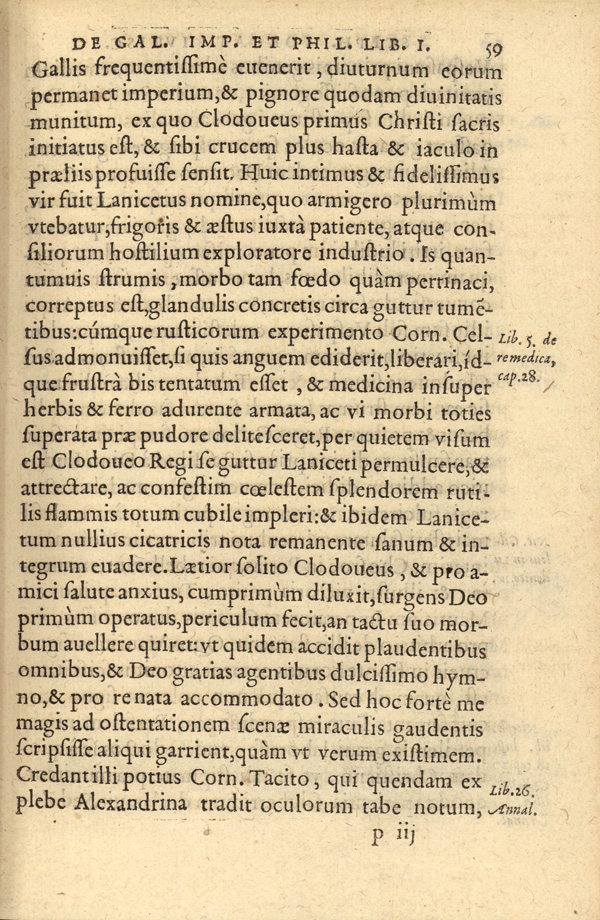 DE GAL. IMP. ET PHIL. LIB. I. 59
Gallis frequentiſſimè euenerit, diuturnum eorum
permanet imperium,& pignore quodam diuinitatis
munitum, ex quo Clodoueus primus Chriſti ſacris
initiatus eſt, & ſibi crucem plus haſta & iaculo in
præliis profuiſſe ſenſit. Huic intimus & fideliſſimus
vir fuit Lanicetus nomine,quo armigero plurimùm
vtebatur,frigoris & æſtus iuxtà patiente, atque con-
ſiliorum hoſtilium exploratore induſtrio. Is quan-
tumuis ſtrumis, morbo tam fœdo quàm pertinaci,
correptus eſt,glandulis concretis circa guttur tumē-
tibus:cúmque ruſticorum experimento Corn. Cel-
ſus admonuiſſet,ſi quis anguem ediderit,liberari,íd-
que fruſtrà bis tentatum eſſet, & medicina inſuper
herbis & ferro adurente armata, ac vi morbi toties
ſuperata præ pudore deliteſceret,per quietem viſum
eſt Clodoueo Regi ſe guttur Laniceti permulcere,&
attrectare, ac confeſtim cœleſtem ſplendorem ruti-
lis flammis totum cubile impleri:& ibidem Lanice-
tum nullius cicatricis nota remanente ſanum & in-
tegrum euadere.Lætior ſolito Clodoueus, & pro a-
mici ſalute anxius, cumprimùm diluxit,ſurgens Deo
primùm operatus,periculum fecit,an tactu ſuo mor-
bum auellere quiret:vt quidem accidit plaudentibus
omnibus,& Deo gratias agentibus dulciſſimo hym-
no,& pro re nata accommodato. Sed hoc fortè me
magis ad oſtentationem ſcenæ miraculis gaudentis
ſcripſiſſe aliqui garrient,quàm vt verum exiſtimem.
Credant illi potius Corn. Tacito, qui quendam ex
plebe Alexandrina tradit oculorum tabe notum,
Lib. 5. de
re medica,
cap. 28.
Lib. 26.
Annal.
p iij